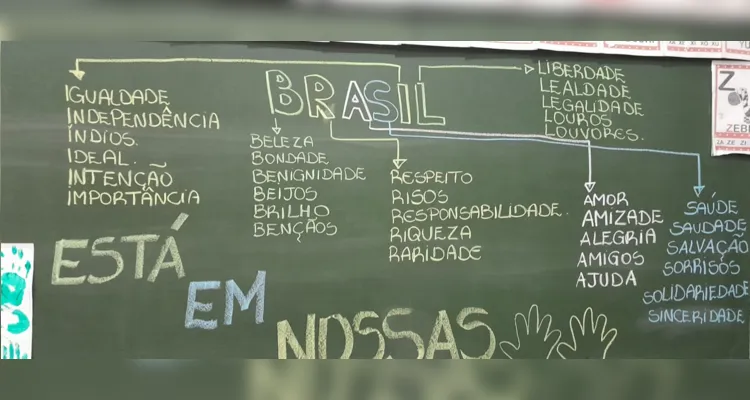 BRASIL
IGUALDADE
INDEPENDÊNCIA
ÍNDIOS.
IDEAL.
INTENÇÃO
IMPORTÂNCIA
BELEZA
BONDADE
BENIGNIDADE
BEIJOS
BRILHO
BENÇÃOS
RESPEITO
RISOS
RESPONSABILIDADE.
RIQUEZA
RARIDADE
LIBERDADE
LEALDADE
LEGALIDADE
LOUROS
LOUVORES.
AMOR
AMIZADE
ALEGRIA
AMIGOS
AJUDA
SAÚDE
SAUDADE
SALVAÇÃO
SORRISOS
SOLIDARIEDADE
SINCERIDADE
ESTÁ
EM
NOSSAS
Z
ZEB
ZA ZE ZI